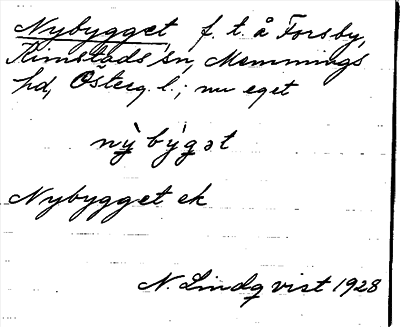 Nybygget f. t. å Forsby,
Kimstads sn, Memmings
hd, Österg. l.; nu eget
nỳ by̆gət
Nybygget ek
N. Lindqvist 1928